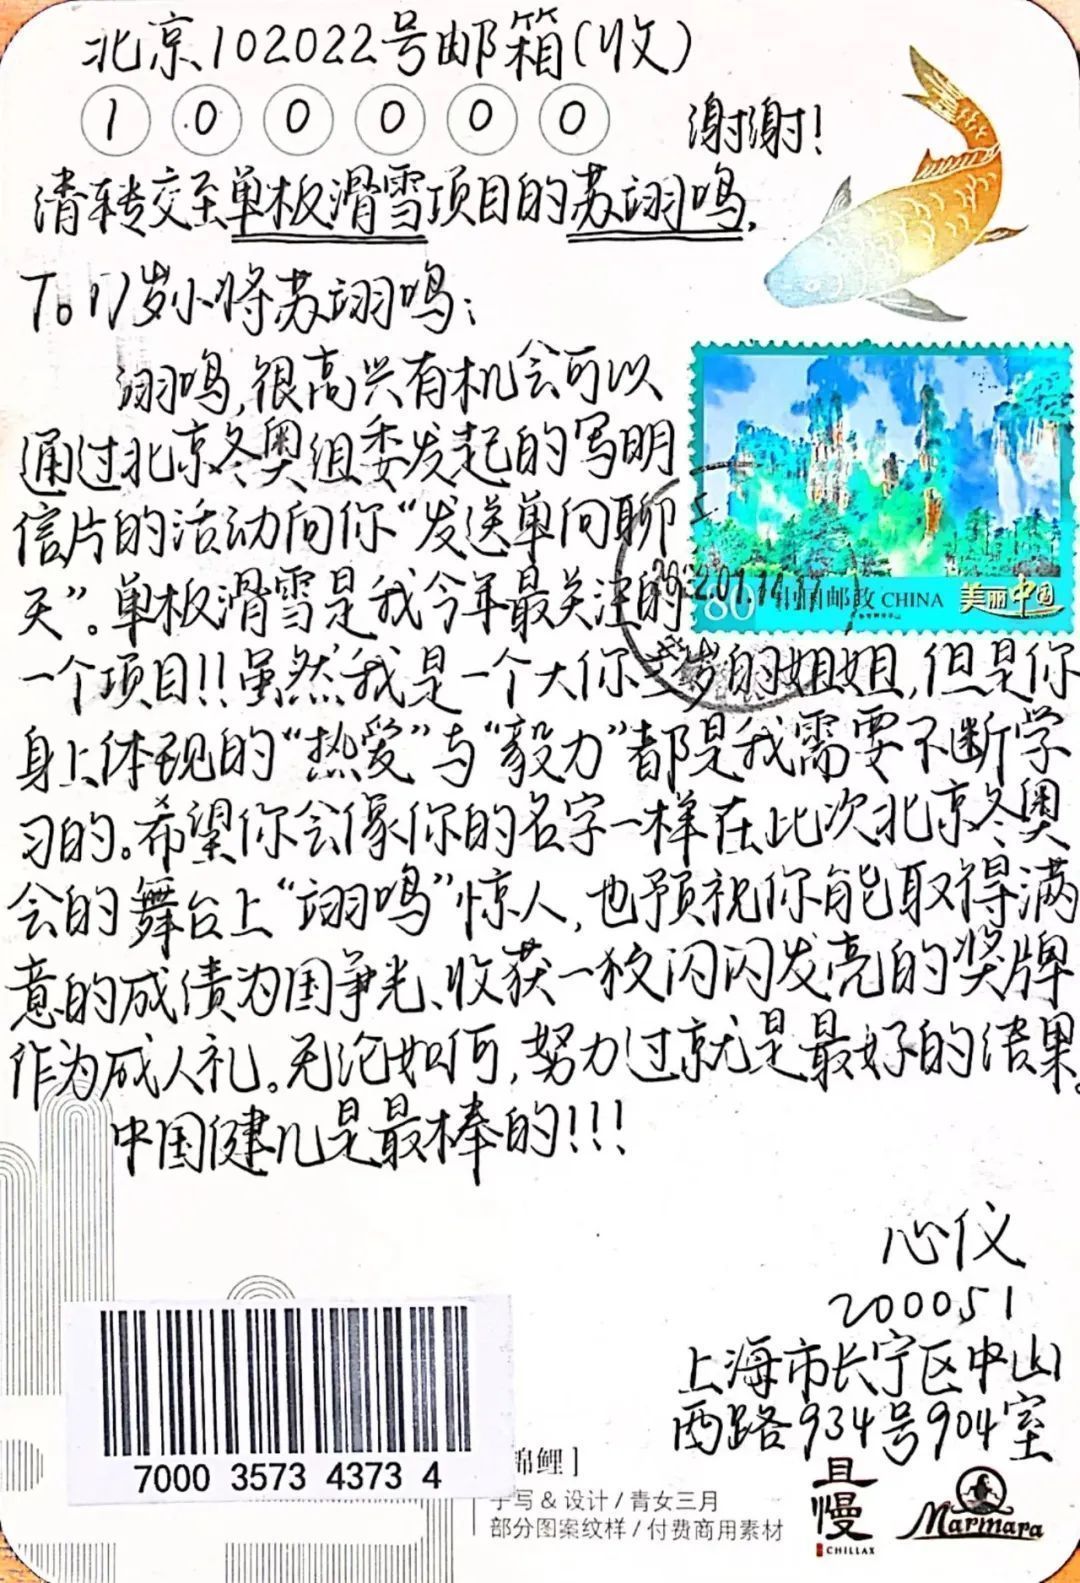 北京102022号邮箱(收)
1 0 0 0 0 0
谢谢!
请转交至单板滑雪项目的苏翊鸣.
To 17岁小将苏翊鸣:
翊鸣,很高兴有机会可以
通过北京冬奥组委发起的写明
信片的活动向你“发送单向聊
天”。单板滑雪是我今年最关注的
一个项目!!虽然我是一个大你 岁的姐姐,但是你
身上体现的“热爱”与“毅力”都是我需要不断学
习的。希望你会像你的名字一样在此次北京冬奥
会的舞台上“翊鸣”惊人,也预祝你能取得满
意的成绩为国争光、收获一枚闪闪发亮的奖牌
作为成人礼。无论如何,努力过就是最好的结果。
中国健儿是最棒的!!!
80 中国邮政 CHINA 美丽中国
心仪
200051
上海市长宁区中山
西路934号904室
7000 3573 4373 4
锦鲤]
手写 & 设计 / 青女三月
部分图案纹样 / 付费商用素材
且慢
CHILLAX
Marmara